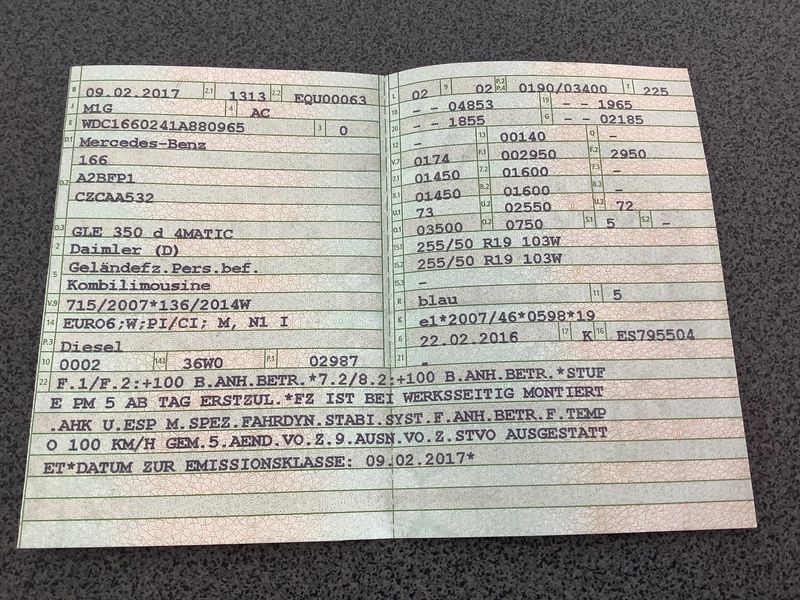 B 09.02.2017 2.1 1313 2.2 EQU00063
J M1G 4 AC
E WDC1660241A880965 3 0
D.1 Mercedes-Benz
166
D.2 A2BFP1
CZCAA532
D.3 GLE 350 d 4MATIC
2 Daimler (D)
5 Geländefz.Pers.bef.
Kombilimousine
V.9 715/2007*136/2014W
14 EURO6;W;PI/CI; M, N1 I
P.3 Diesel
10 0002 14.1 36W0 P.1 02987
L 02 9 02 P.2 P.4 0190/03400 T 225
18 - - 04853 19 - - 1965
20 - - 1855 G - - 02185
12 - 13 00140 Q -
V.7 0174 F.1 002950 F.2 2950
7.1 01450 7.2 01600 7.3 -
8.1 01450 8.2 01600 8.3 -
U.1 73 U.2 02550 U.3 72
O.1 03500 O.2 0750 S.1 5 S.2 -
15.1 255/50 R19 103W
15.2 255/50 R19 103W
15.3 -
R blau 11 5
K e1*2007/46*0598*19
6 22.02.2016 17 K 16 ES795504
21 -
22 F.1/F.2:+100 B.ANH.BETR.*7.2/8.2:+100 B.ANH.BETR.*STUF
E PM 5 AB TAG ERSTZUL.*FZ IST BEI WERKSSEITIG MONTIERT
.AHK U.ESP M.SPEZ.FAHRDYN.STABI.SYST.F.ANH.BETR.F.TEMP
O 100 KM/H GEM.5.AEND.VO.Z.9.AUSN.VO.Z.STVO AUSGESTATT
ET*DATUM ZUR EMISSIONSKLASSE: 09.02.2017*